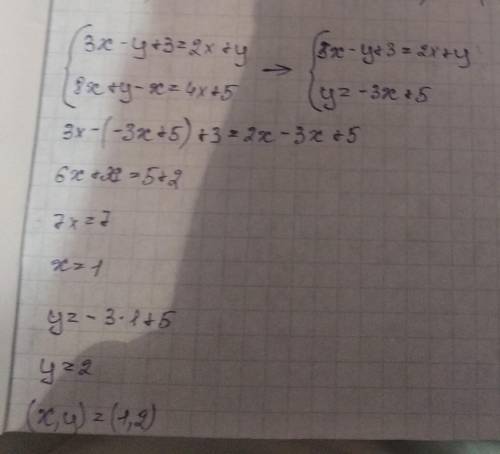 3x-y+3=2x+y → 3x-y+3=2x+y
8x+y-x=4x+5 y=-3x+5
3x-(-3x+5)+3=2x-3x+5
6x+x=5+2
7x=7
x=1
y=-3·1+5
y=2
(x,y)=(1,2)